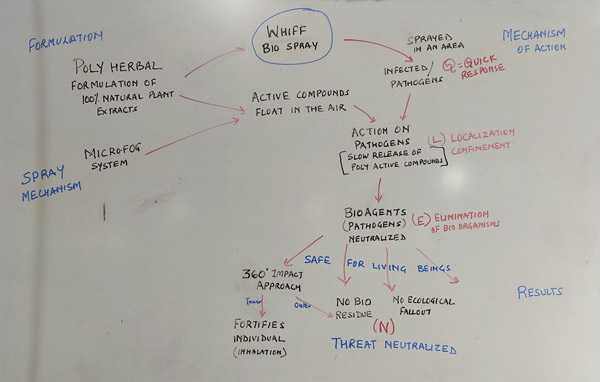 FORMULATION
WHIFF
BIO SPRAY
SPRAYED
IN AN AREA
MECHANISM
OF ACTION
POLY HERBAL
FORMULATION OF
100% NATURAL PLANT
EXTRACTS
INFECTED/
PATHOGENS
Q = QUICK
RESPONSE
ACTIVE COMPOUNDS
FLOAT IN THE AIR
MICRO-FOG
SYSTEM
SPRAY
MECHANISM
ACTION ON
PATHOGENS
[SLOW RELEASE OF
POLY ACTIVE COMPOUNDS]
(L) LOCALIZATION
CONFINEMENT
BIOAGENTS
(PATHOGENS)
NEUTRALIZED
(E) ELIMINATION
OF BIO ORGANISMS
SAFE FOR LIVING BEINGS
360° IMPACT
APPROACH
Inner
Outer
NO BIO
RESIDUE
NO ECOLOGICAL
FALLOUT
RESULTS
FORTIFIES
INDIVIDUAL
(INHALATION)
(N)
THREAT NEUTRALIZED